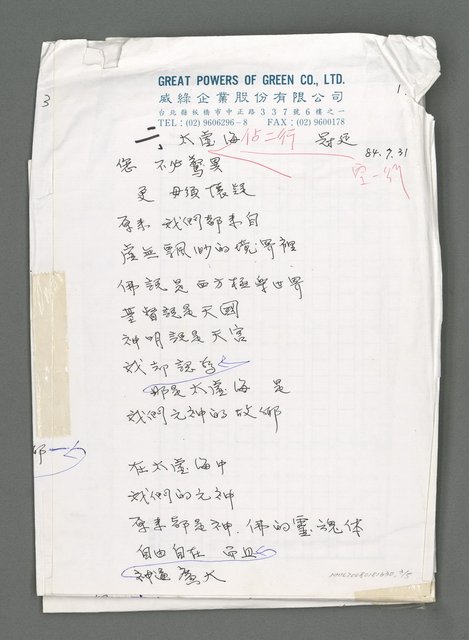 3
1.
GREAT POWERS OF GREEN CO., LTD.
威綠企業股份有限公司
台北縣板橋市中正路337號6樓之一
TEL:(02) 9606296-8 FAX:(02) 9600178
二、太虛海 佔二行
84.9.31
空一行
您 不必驚異
更 毋須懷疑
原來 我們都來自
虛無飄渺的境界裡
佛說是西方極樂世界
基督說是天國
神明說是天宮
我却認為
那是太虛海 是
我們元神的故鄉
在太虛海中
我們的元神
原來都是神、佛的靈魂体
自由自在 而且
神通廣大